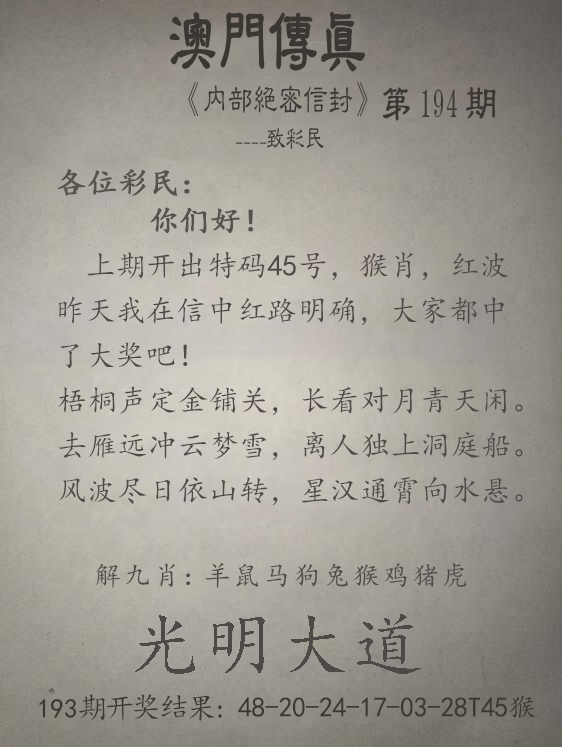 澳門傳眞
《内部絕密信封》第194期
----致彩民
各位彩民：
你们好！
上期开出特码45号，猴肖，红波
昨天我在信中红路明确，大家都中
了大奖吧！
梧桐声定金铺关，长看对月青天闲。
去雁远冲云梦雪，离人独上洞庭船。
风波尽日依山转，星汉通霄向水悬。
解九肖：羊鼠马狗兔猴鸡猪虎
光明大道
193期开奖结果：48-20-24-17-03-28T45猴